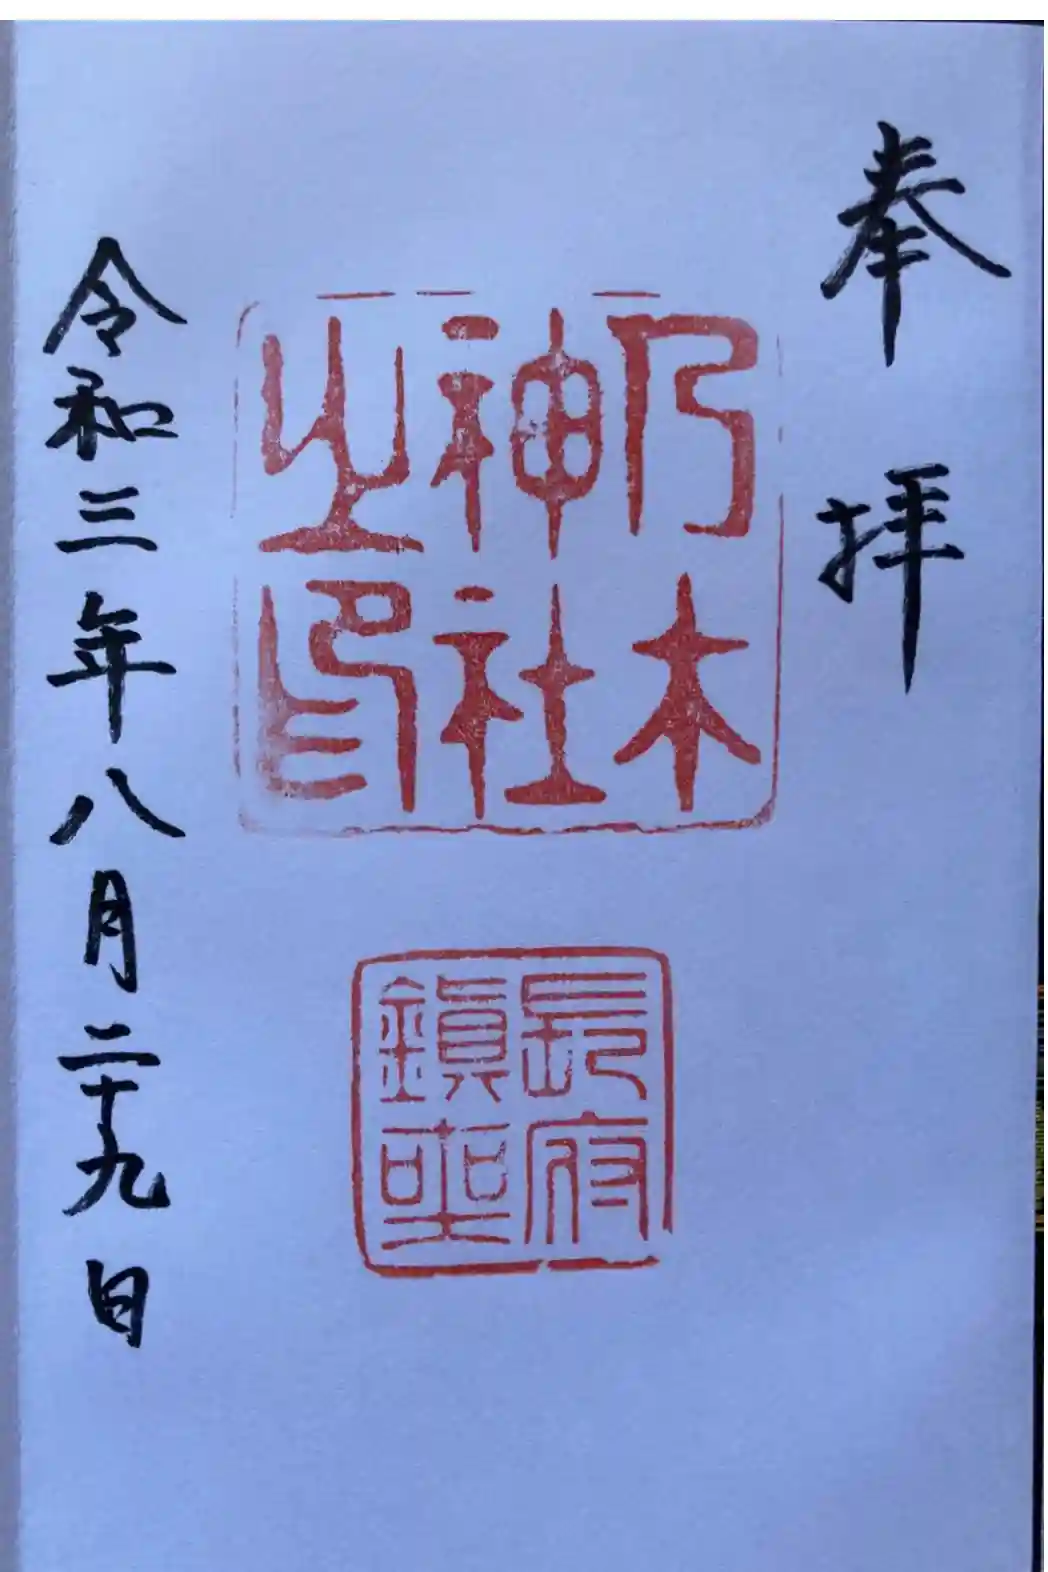 奉拝
乃木
神社
之印
長府
鎮座
令和三年八月二十九日